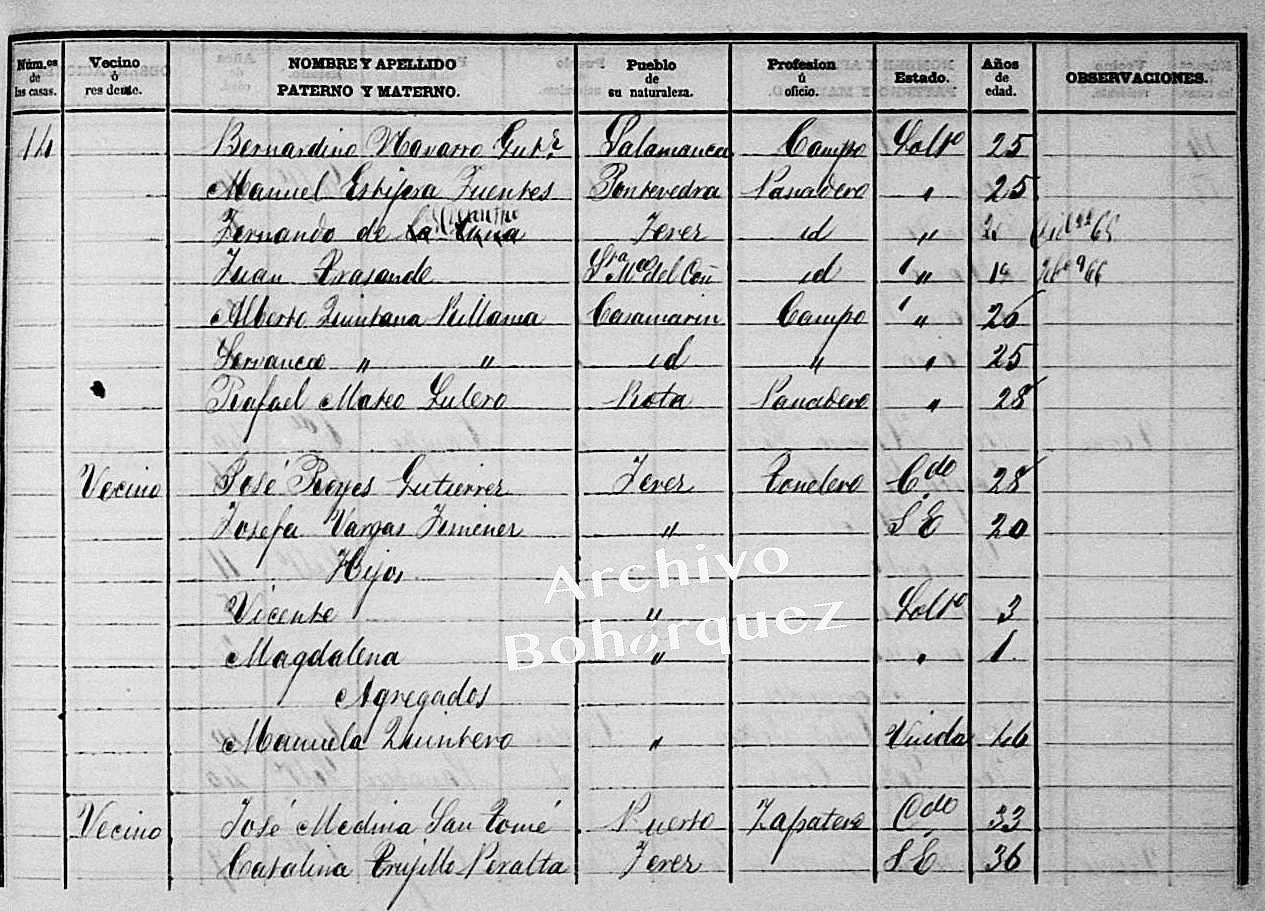 Núm.os de las casas. Vecino ó residente. NOMBRE Y APELLIDO PATERNO Y MATERNO. Pueblo de su naturaleza. Profesion ú oficio. Estado. Años de edad. OBSERVACIONES.
14 Bernardino Navarro Gut.z Salamanca Campo Solto 25
Manuel Fuentes Pontevedra Panadero " 25
Fernando de Jerez id "
Juan id " 19
Alberto Quintana Casamarin Campo "
" " id " " 25
Rafael Mateo Rota Panadero " 28
Vecino José Reyes Gutierrez Jerez Tonelero Cdo 28
Josefa Vargas Jimenez " S. E 20
Hijos
Vicente " Solto 3
Magdalena " " 1
Agregados
Manuela Quintero " Viuda 46
Vecino José Medina San Tomé Puerto Zapatero Cdo 33
Catalina Trujillo Peralta Jerez S. E 36
Archivo
Bohórquez